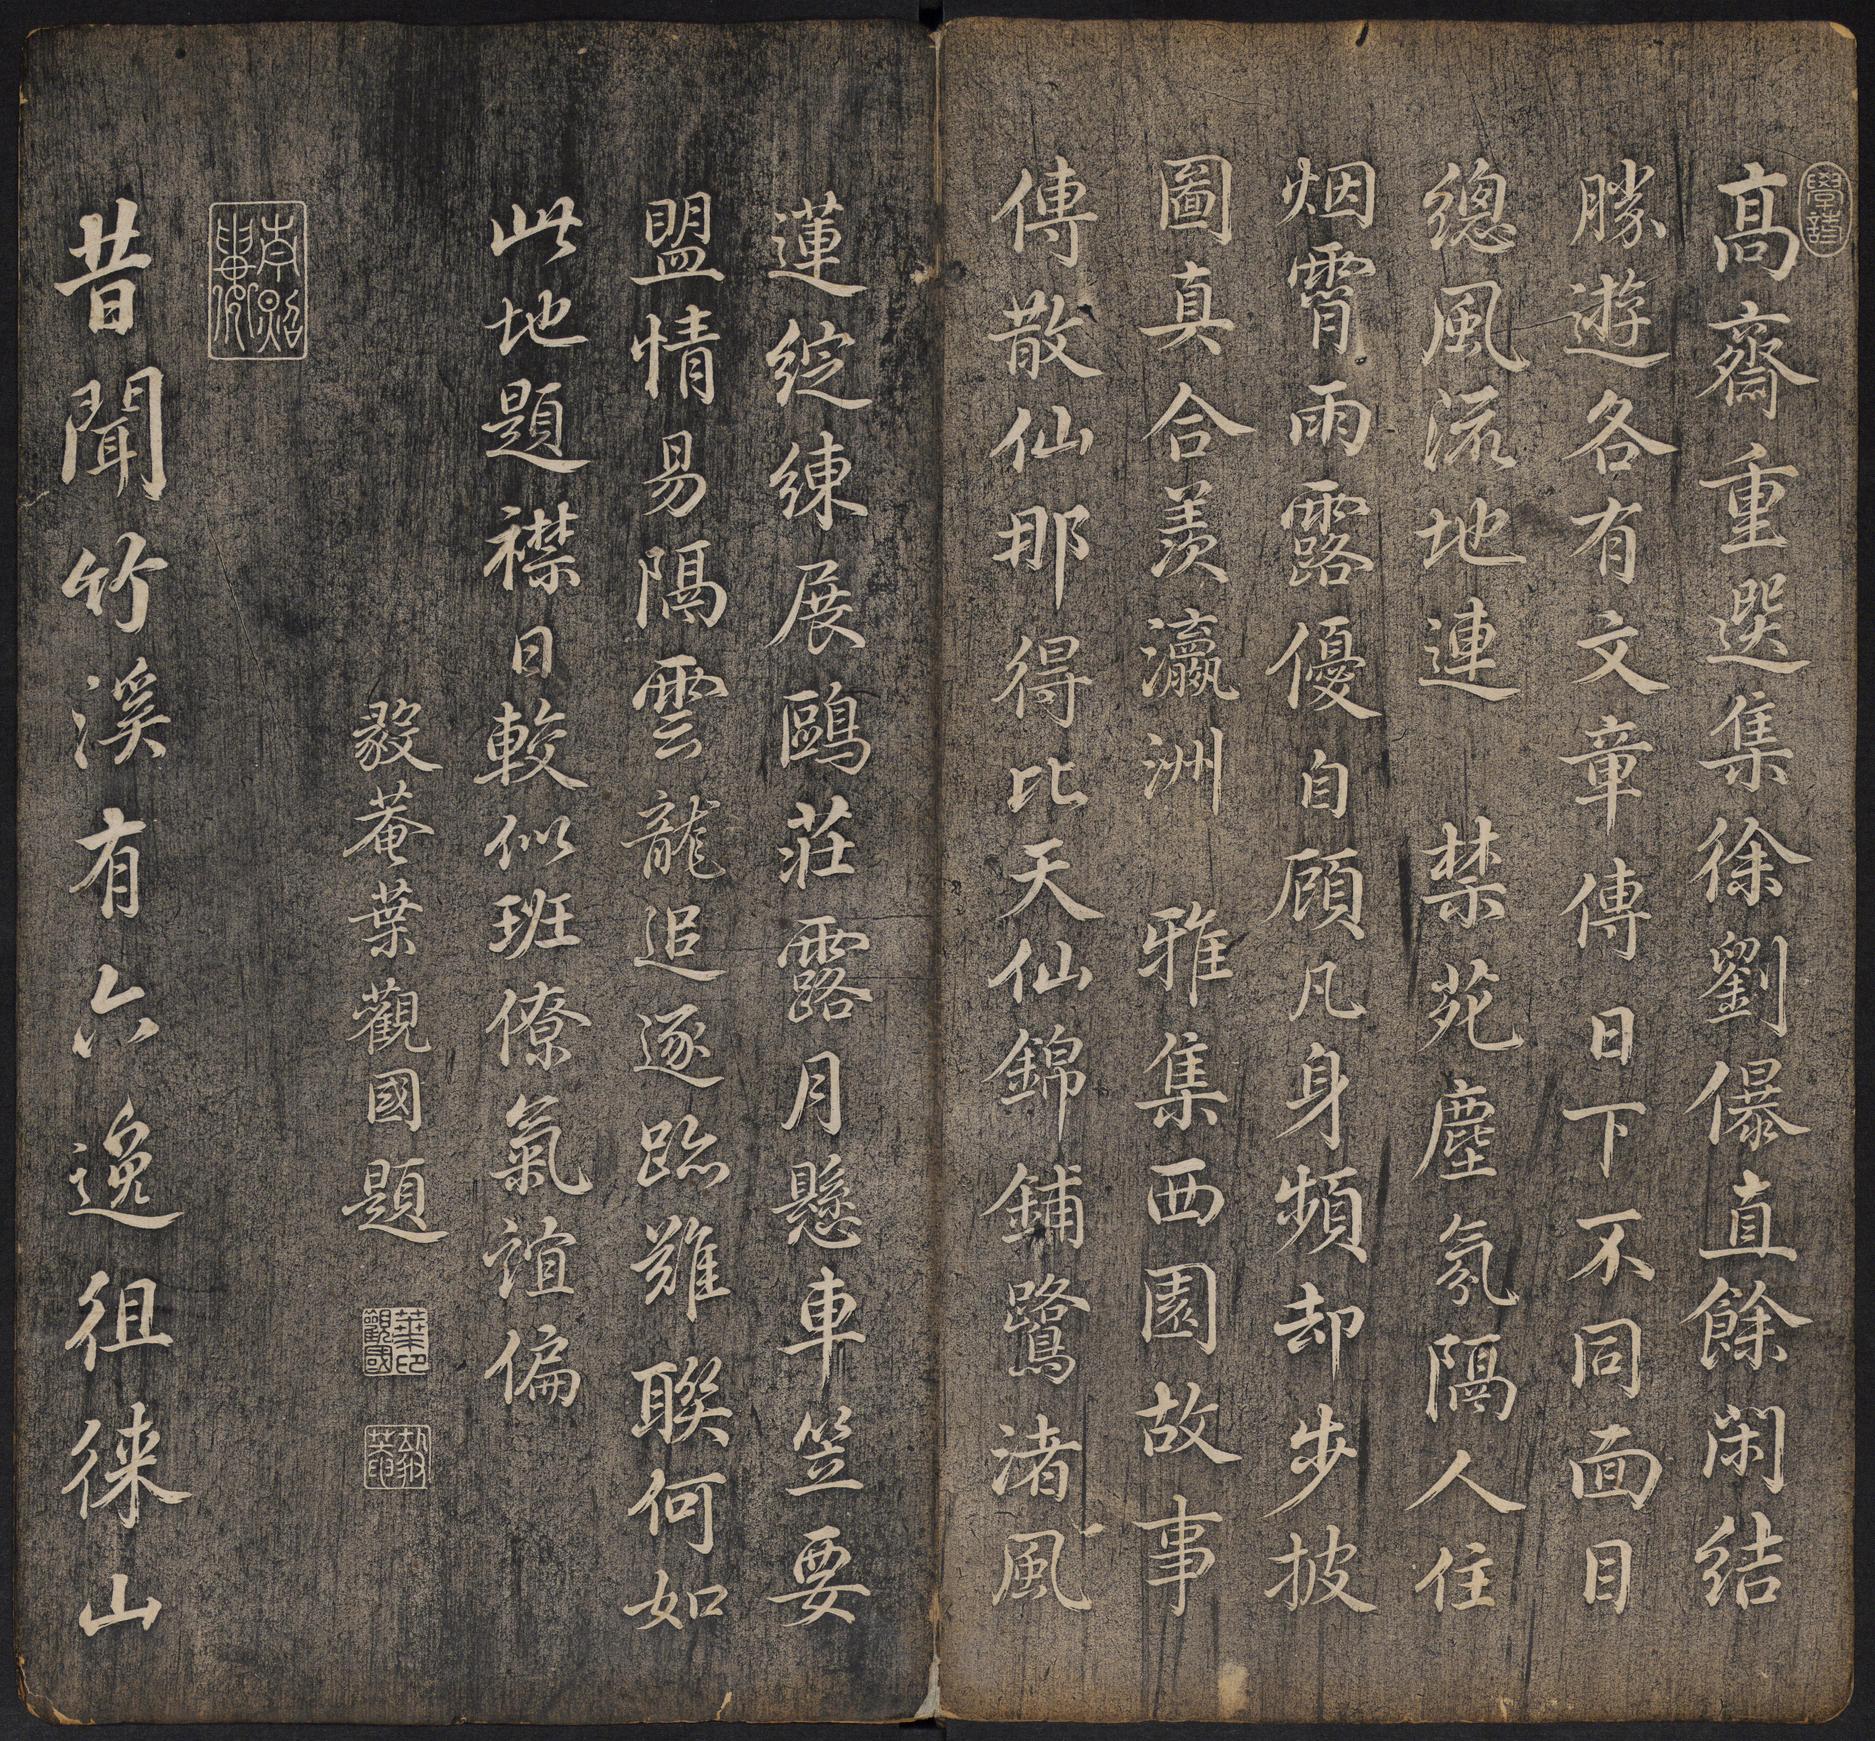 學詩
高齋重選集徐劉儤直餘閑結
勝遊各有文章傳日下不同面目
總風流地連 禁苑塵氛隔人住
烟霄雨露優自顧凡身頻却步披
圖真合羨瀛洲 雅集西園故事
傳散仙那得比天仙錦鋪鷺渚風
蓮綻練展鷗莊露月懸車笠要
盟情易隔雲龍追逐跡難聯何如
此地題襟日較似班僚氣誼偏
毅菴葉觀國題
葉印觀國
毅菴
昔聞竹溪有六逸徂徠山